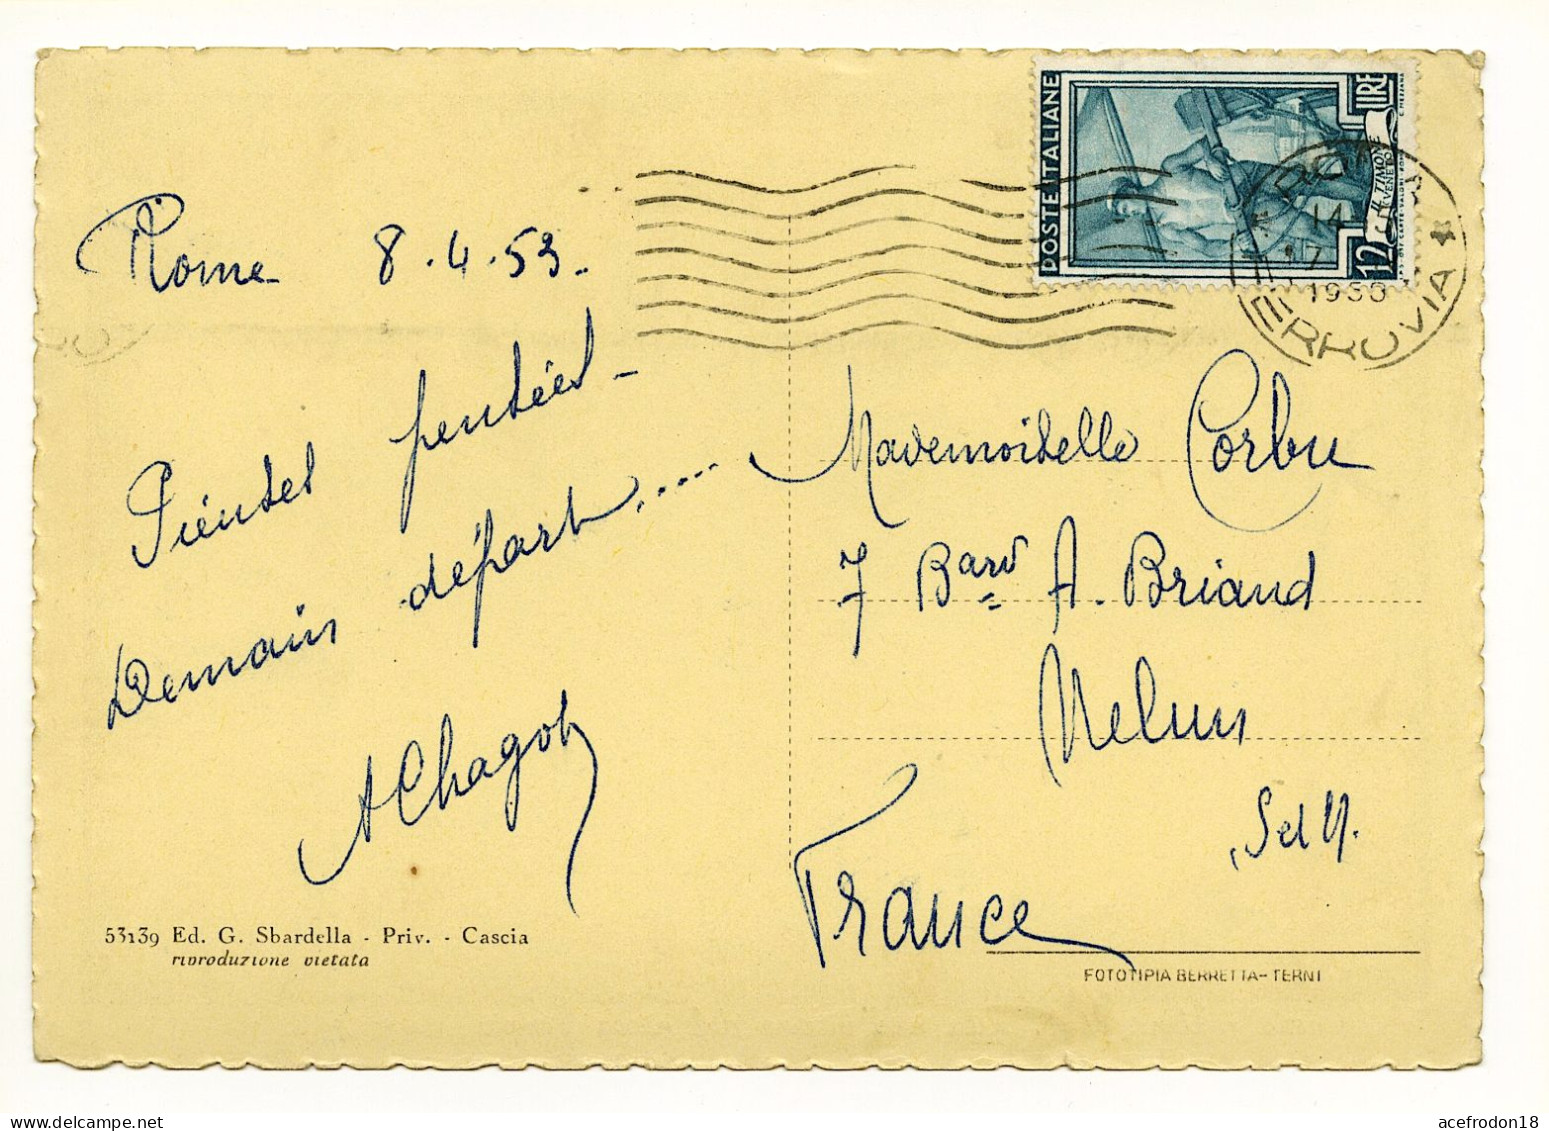 Rome 8.4.53.
Pieuses pensées -
Demain départ.....
AChagot
Mademoiselle Corbu
7 Bard A. Briand
Melun
S et M.
France
POSTE ITALIANE
12 LIRE
IL TIMONE
VENETO
14
17
FERROVIA *
53139 Ed. G. Sbardella - Priv. - Cascia
riproduzione vietata
FOTOTIPIA BERRETTA - TERNI
acefrodon18